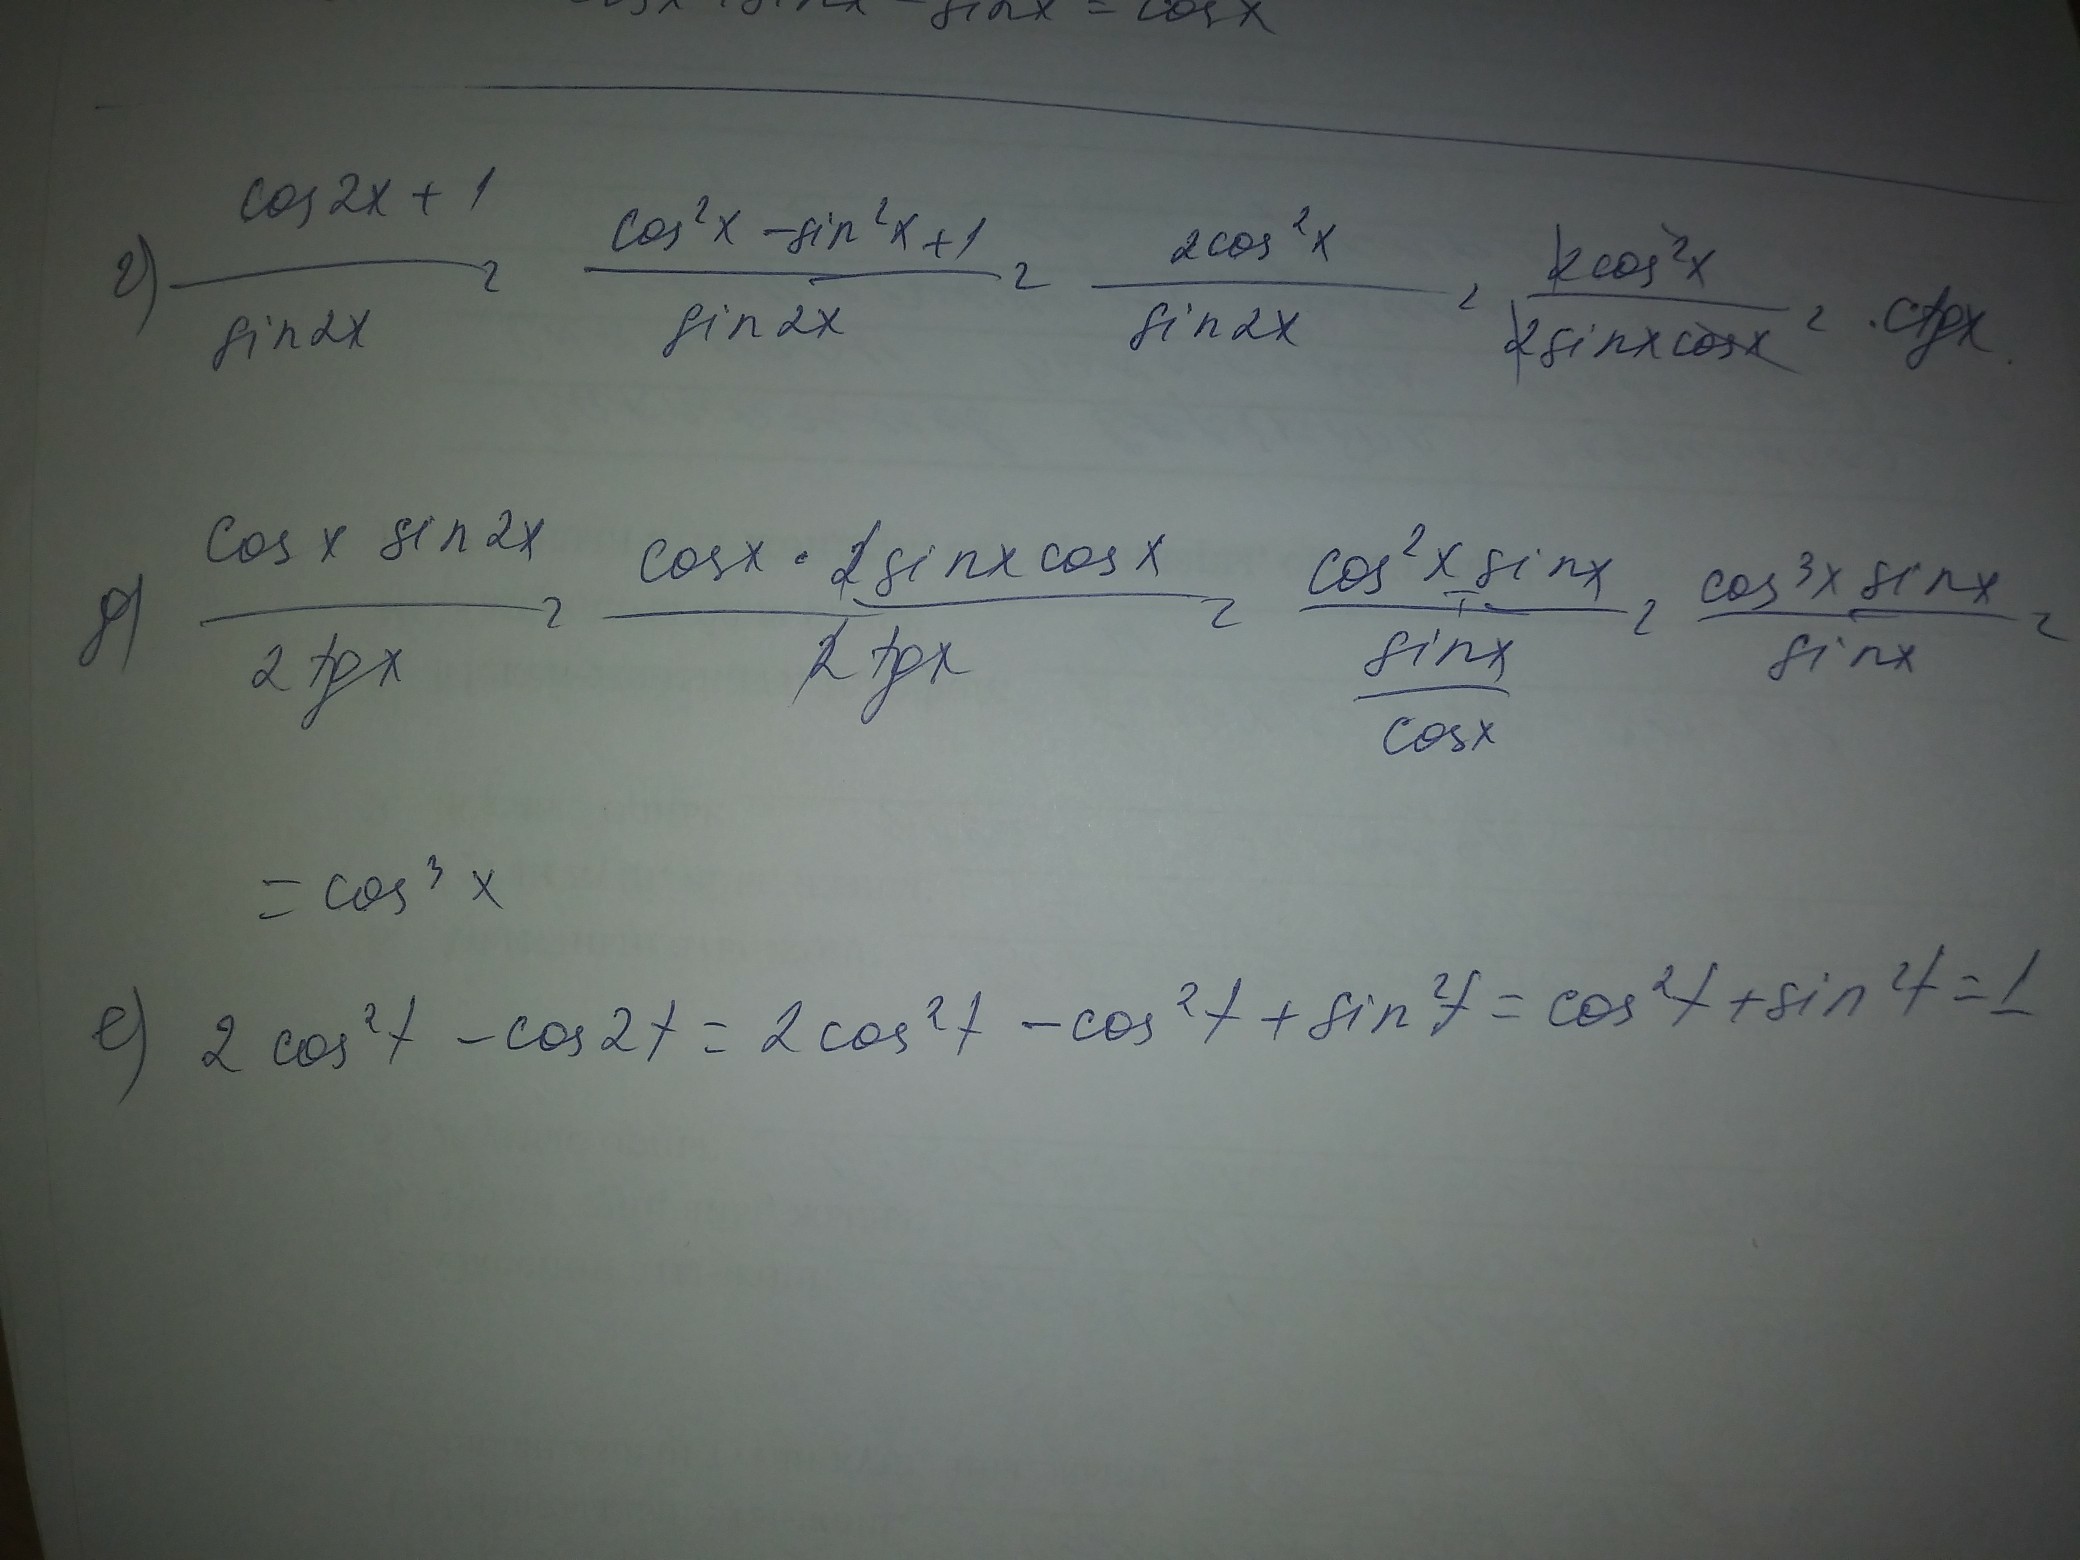 cosx + sinx - sinx = cosx
г) (cos2x + 1)/(sin2x) = (cos²x - sin²x + 1)/(sin2x) = (2cos²x)/(sin2x) = (2cos²x)/(2sinxcosx) = ctgx
д) (cosx sin2x)/(2tgx) = (cosx · 2sinxcosx)/(2tgx) = (cos²x sinx)/(sinx/cosx) = (cos³x sinx)/(sinx) =
= cos³x
е) 2cos²t - cos2t = 2cos²t - cos²t + sin²t = cos²t + sin²t = 1